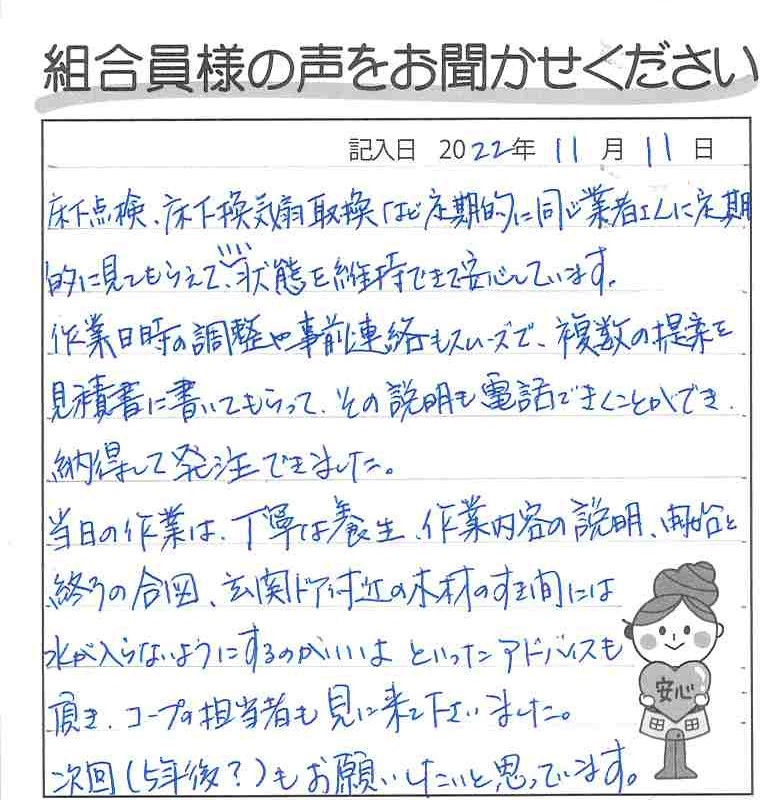 組合員様の声をお聞かせください
記入日 2022年 11月 11日
床下点検、床下換気扇取換など定期的に同じ業者さんに定期
的に見てもらえて、状態を維持できて安心しています。
作業日時の調整や事前連絡もスムーズで、複数の提案を
見積書に書いてもらって、その説明も電話できくことができ、
納得して発注できました。
当日の作業は、丁寧な養生、作業内容の説明、開始と
終りの合図、玄関ドア付近の木材のすき間には
水が入らないようにするのがいいよ といったアドバイスも
頂き、コープの担当者も見に来て下さいました。
次回(5年後?)もお願いしたいと思っています。
安心